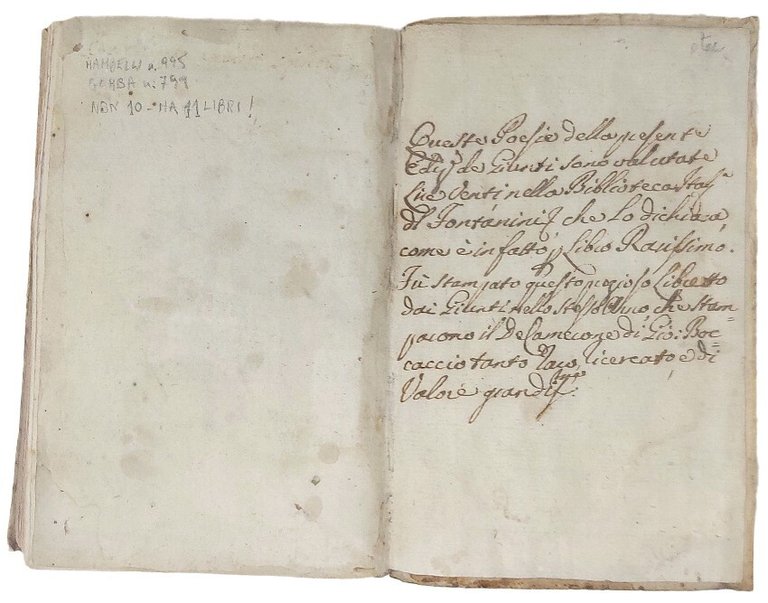 n. 995
n. 799
NON 10 - HA 11 LIBRI!
Queste Poesie della presente
de Giunti sono valutate
Lire Venti nella Biblioteca
Fontanini che Lo dichiara
come è in fatto p Libro Rarissimo.
Fù stampato questo Libretto
dai Giunti nello stesso che stam=
parono il Decamerone di Gio: Boc=
caccio tanto raro, ricercato e di
Valore